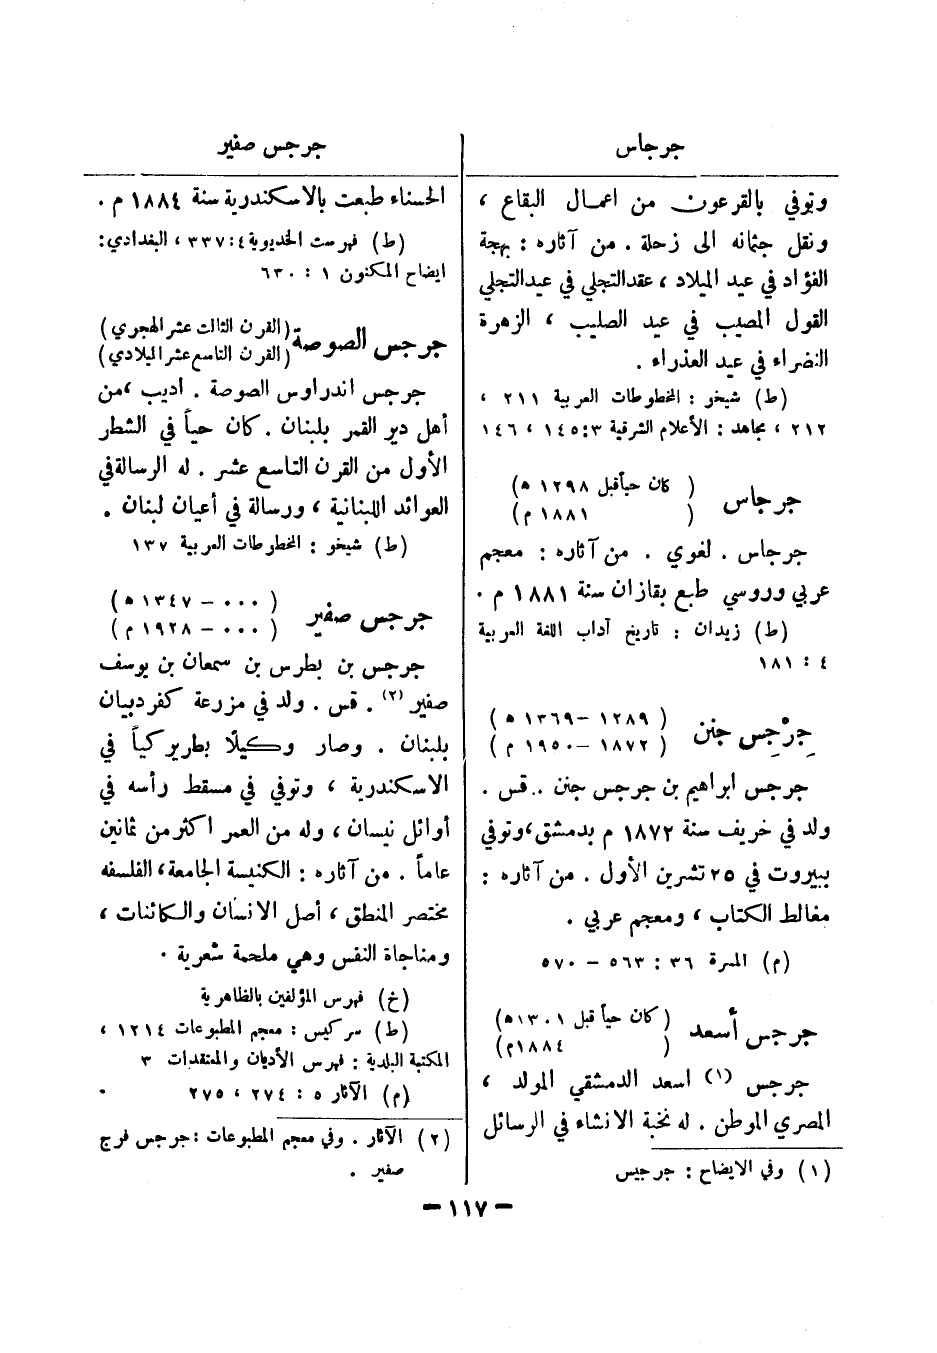 جرجاس
وتوفي بالقرعون من اعمال البقاع ،
ونقل جثمانه الى زحلة . من آثاره : بهجة
الفؤاد في عيد الميلاد ، عقدالتجلي في عيدالتجلي
القول المصيب في عيد الصليب ، الزهرة
النضراء في عيد العذراء .
(ط) شيخو : المخطوطات العربية ٢١١ ،
٢١٢ ، مجاهد : الأعلام الشرقية ٣:١٤٥ ، ١٤٦
جرجاس ( كان حياً قبل ١٢٩٨ ه)
( ١٨٨١ م)
جرجاس . لغوي . من آثاره : معجم
عربي وروسي طبع بقازان سنة ١٨٨١ م .
(ط) زيدان : تاريخ آداب اللغة العربية
٤ : ١٨١
جِرْجِس جنن ( ١٢٨٩ – ١٣٦٩ ه )
( ١٨٧٢ – ١٩٥٠ م )
جرجس ابراهيم بن جرجس جنن .. قس .
ولد في خريف سنة ١٨٧٢ م بدمشق ، وتوفي
ببيروت في ٢٥ تشرين الأول . من آثاره :
مغالط الكتاب ، ومعجم عربي .
(م) المسرة ٣٦ : ٥٦٣ – ٥٧٠
جرجس أسعد ( كان حياً قبل ١٣٠١ ه)
( ١٨٨٤م)
جرجس (١) اسعد الدمشقي المولد ،
المصري الموطن . له نخبة الانشاء في الرسائل
(١) وفي الايضاح : جرجيس
جرجس صفير
الحسناء طبعت بالاسكندرية سنة ١٨٨٤ م .
(ط) فهرست الخديوية ٤:٣٣٧ ، البغدادي:
ايضاح المكنون ١ : ٦٣٠
جرجس الصوصة (القرن الثالث عشر الهجري)
(القرن التاسع عشر الميلادي)
جرجس اندراوس الصوصة . أديب ، من
أهل دير القمر بلبنان . كان حياً في الشطر
الأول من القرن التاسع عشر . له الرسالة في
العوائد اللبنانية ، ورسالة في أعيان لبنان .
(ط) شيخو : المخطوطات العربية ١٣٧
جرجس صفير ( ٠٠٠ – ١٣٤٧ ه )
( ٠٠٠ – ١٩٢٨ م )
جرجس بن بطرس بن سمعان بن يوسف
صفير (٢) . قس . ولد في مزرعة كفردبيان
بلبنان . وصار وكيلًا بطريركياً في
الاسكندرية ، وتوفي في مسقط رأسه في
أوائل نيسان ، وله من العمر اكثر من ثمانين
عاماً . من آثاره : الكنيسة الجامعة ، الفلسفه
مختصر المنطق ، أصل الانسان والكائنات ،
ومناجاة النفس وهي ملحمة شعرية .
(خ) فهرس المؤلفين بالظاهرية
(ط) سركيس : معجم المطبوعات ١٢١٤ ،
المكتبة البلدية : فهرس الأديان والمعتقدات ٣
(م) الآثار ٥ : ٢٧٤ ، ٢٧٥ .
(٢) الآثار . وفي معجم المطبوعات : جرجس فرج
صفير .
– ١١٧ –